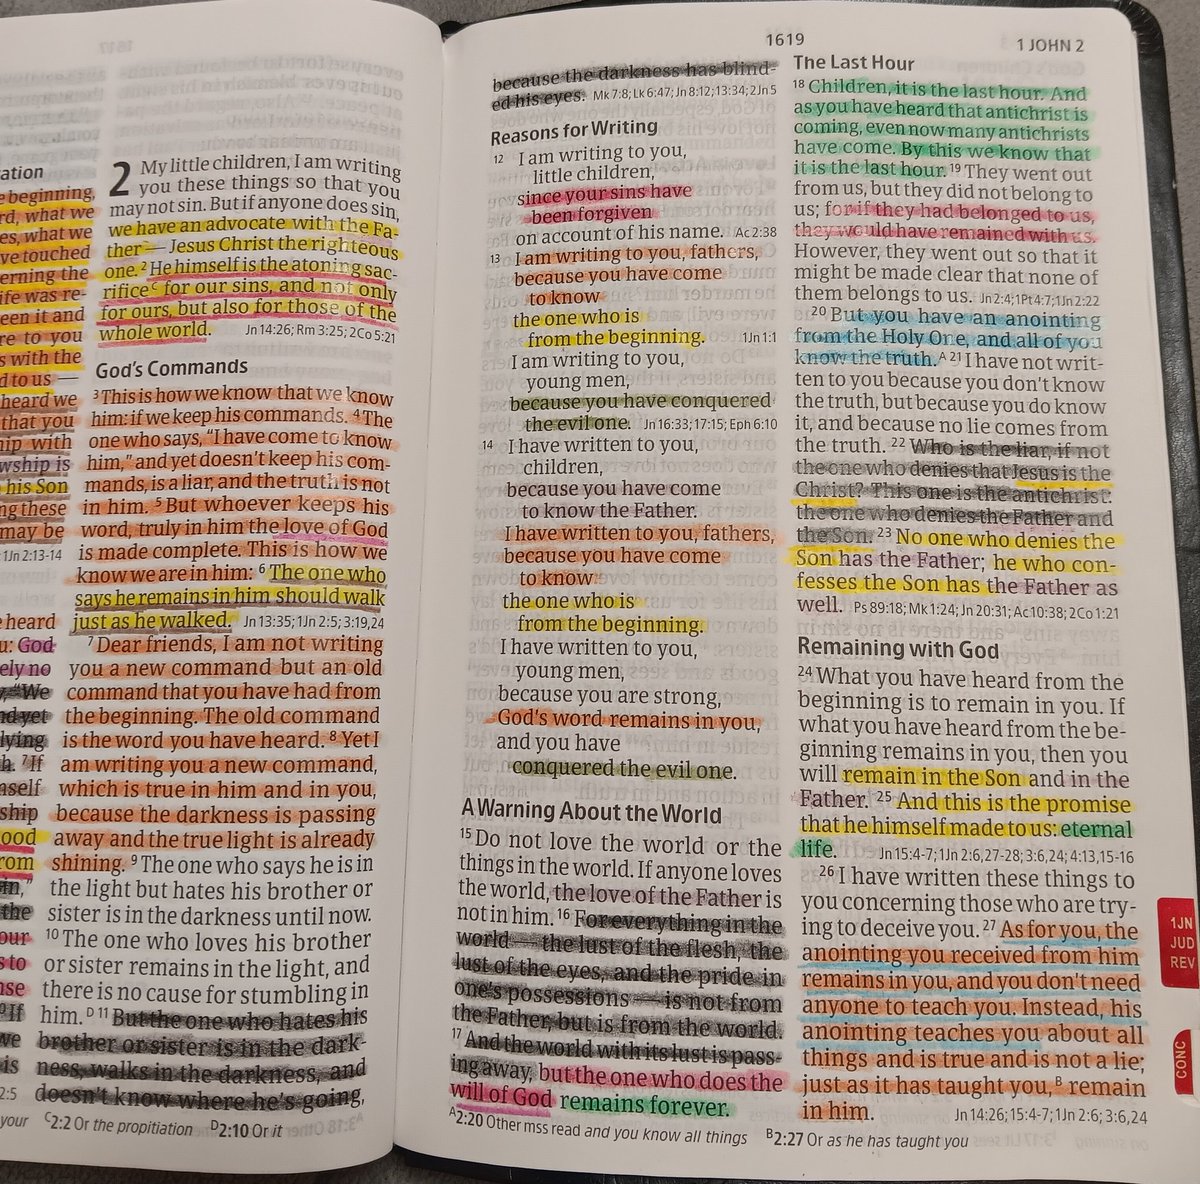 ation
e beginning,
rd, what we
es, what we
ve touched
erning the
ife was re-
een it and
re to you
s with the
d to us —
heard we
that you
hip with
wship is
his Son
ng these
may be
1Jn 2:13-14
e heard
u: God
ely no
, “We
nd yet
lying
h. 7 If
mself
ship
ood
rom
in,”
the
our
s to
nse
If
we
is
2:5
your
2 My little children, I am writing
you these things so that you
may not sin. But if anyone does sin,
we have an advocate with the Fa-
ther — Jesus Christ the righteous
one. 2 He himself is the atoning sac-
rifice C for our sins, and not only
for ours, but also for those of the
whole world. Jn 14:26; Rm 3:25; 2Co 5:21
God’s Commands
3 This is how we know that we know
him: if we keep his commands. 4 The
one who says, “I have come to know
him,” and yet doesn’t keep his com-
mands, is a liar, and the truth is not
in him. 5 But whoever keeps his
word, truly in him the love of God
is made complete. This is how we
know we are in him: 6 The one who
says he remains in him should walk
just as he walked. Jn 13:35; 1Jn 2:5; 3:19,24
7 Dear friends, I am not writing
you a new command but an old
command that you have had from
the beginning. The old command
is the word you have heard. 8 Yet I
am writing you a new command,
which is true in him and in you,
because the darkness is passing
away and the true light is already
shining. 9 The one who says he is in
the light but hates his brother or
sister is in the darkness until now.
10 The one who loves his brother
or sister remains in the light, and
there is no cause for stumbling in
him. D 11 But the one who hates his
brother or sister is in the dark-
ness, walks in the darkness, and
doesn’t know where he’s going,
C 2:2 Or the propitiation D 2:10 Or it
1619
1 JOHN 2
because the darkness has blind-
ed his eyes. Mk 7:8; Lk 6:47; Jn 8:12; 13:34; 2Jn 5
Reasons for Writing
12 I am writing to you,
little children,
since your sins have
been forgiven
on account of his name. Ac 2:38
13 I am writing to you, fathers,
because you have come
to know
the one who is
from the beginning. 1Jn 1:1
I am writing to you,
young men,
because you have conquered
the evil one. Jn 16:33; 17:15; Eph 6:10
14 I have written to you,
children,
because you have come
to know the Father.
I have written to you, fathers,
because you have come
to know
the one who is
from the beginning.
I have written to you,
young men,
because you are strong,
God’s word remains in you,
and you have
conquered the evil one.
A Warning About the World
15 Do not love the world or the
things in the world. If anyone loves
the world, the love of the Father is
not in him. 16 For everything in the
world — the lust of the flesh, the
lust of the eyes, and the pride in
one’s possessions — is not from
the Father, but is from the world.
17 And the world with its lust is pass-
ing away, but the one who does the
will of God remains forever.
The Last Hour
18 Children, it is the last hour. And
as you have heard that antichrist is
coming, even now many antichrists
have come. By this we know that
it is the last hour. 19 They went out
from us, but they did not belong to
us; for if they had belonged to us,
they would have remained with us.
However, they went out so that it
might be made clear that none of
them belongs to us. Jn 2:4; 1Pt 4:7; 1Jn 2:22
20 But you have an anointing
from the Holy One, and all of you
know the truth. A 21 I have not writ-
ten to you because you don’t know
the truth, but because you do know
it, and because no lie comes from
the truth. 22 Who is the liar, if not
the one who denies that Jesus is the
Christ? This one is the antichrist:
the one who denies the Father and
the Son. 23 No one who denies the
Son has the Father; he who con-
fesses the Son has the Father as
well. Ps 89:18; Mk 1:24; Jn 20:31; Ac 10:38; 2Co 1:21
Remaining with God
24 What you have heard from the
beginning is to remain in you. If
what you have heard from the be-
ginning remains in you, then you
will remain in the Son and in the
Father. 25 And this is the promise
that he himself made to us: eternal
life. Jn 15:4-7; 1Jn 2:6,27-28; 3:6,24; 4:13,15-16
26 I have written these things to
you concerning those who are try-
ing to deceive you. 27 As for you, the
anointing you received from him
remains in you, and you don’t need
anyone to teach you. Instead, his
anointing teaches you about all
things and is true and is not a lie;
just as it has taught you, B remain
in him. Jn 14:26; 15:4-7; 1Jn 2:6; 3:6,24
A 2:20 Other mss read and you know all things B 2:27 Or as he has taught you
1JN
JUD
REV
CONC